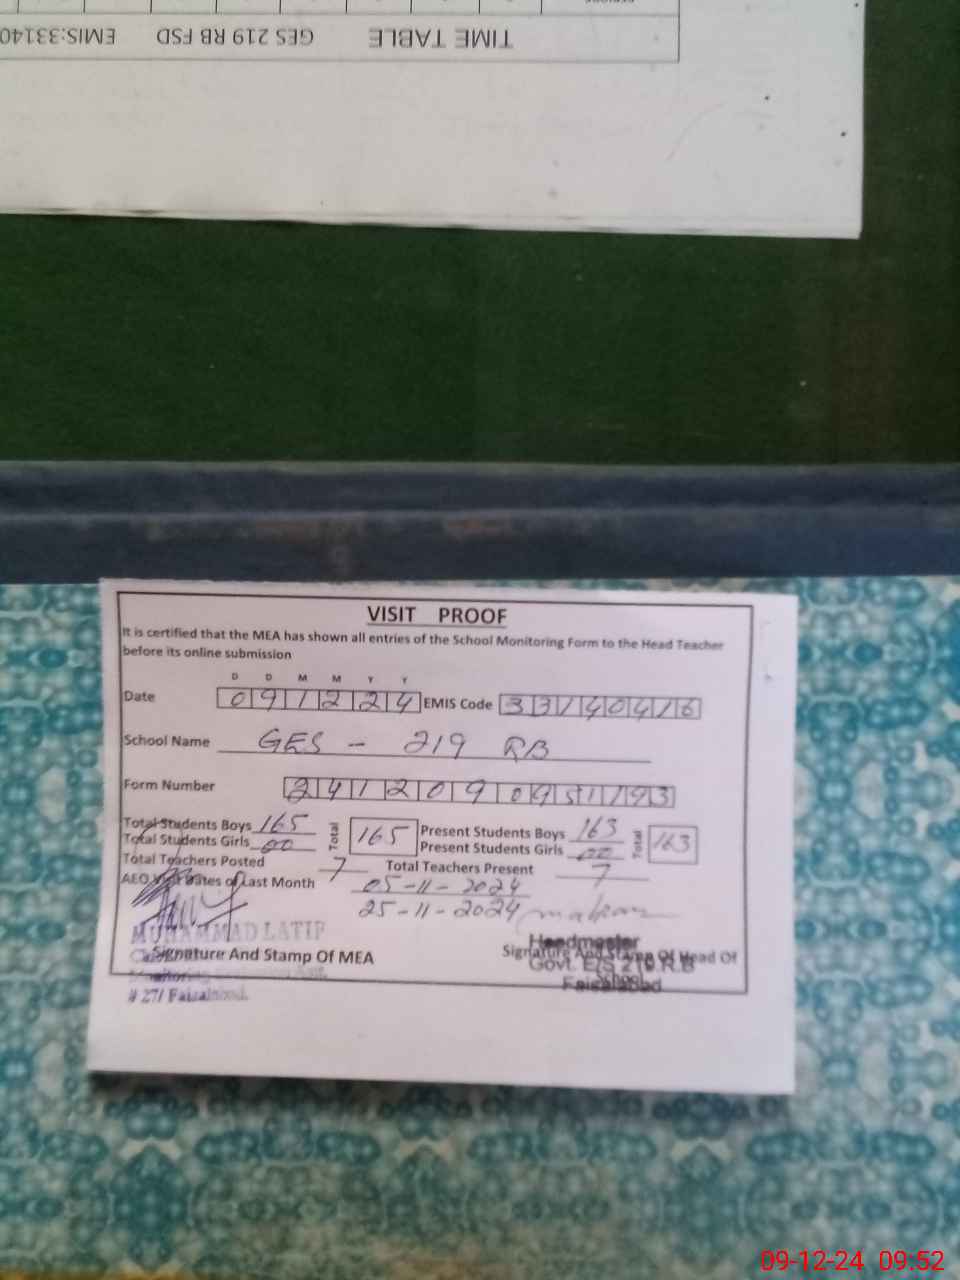 TIME TABLE GES 219 RB FSD EMIS:33140
VISIT PROOF
It is certified that the MEA has shown all entries of the School Monitoring Form to the Head Teacher
before its online submission
D D M M Y Y
Date 091224 EMIS Code 33140416
School Name GES - 219 RB
Form Number 241209095193
Total Students Boys 165 Total 165 Present Students Boys 163 Total 163
Total Students Girls 00 Present Students Girls 00
Total Teachers Posted 7 Total Teachers Present 7
AEO Visit Dates of Last Month 05-11-2024
25-11-2024
MUHAMMAD LATIF
Signature And Stamp Of MEA
Headmaster
Signature And Stamp Of Head Of
School
Govt. E/S 219.R.B
Faisalabad
# 27/ Faisalabad.
09-12-24 09:52